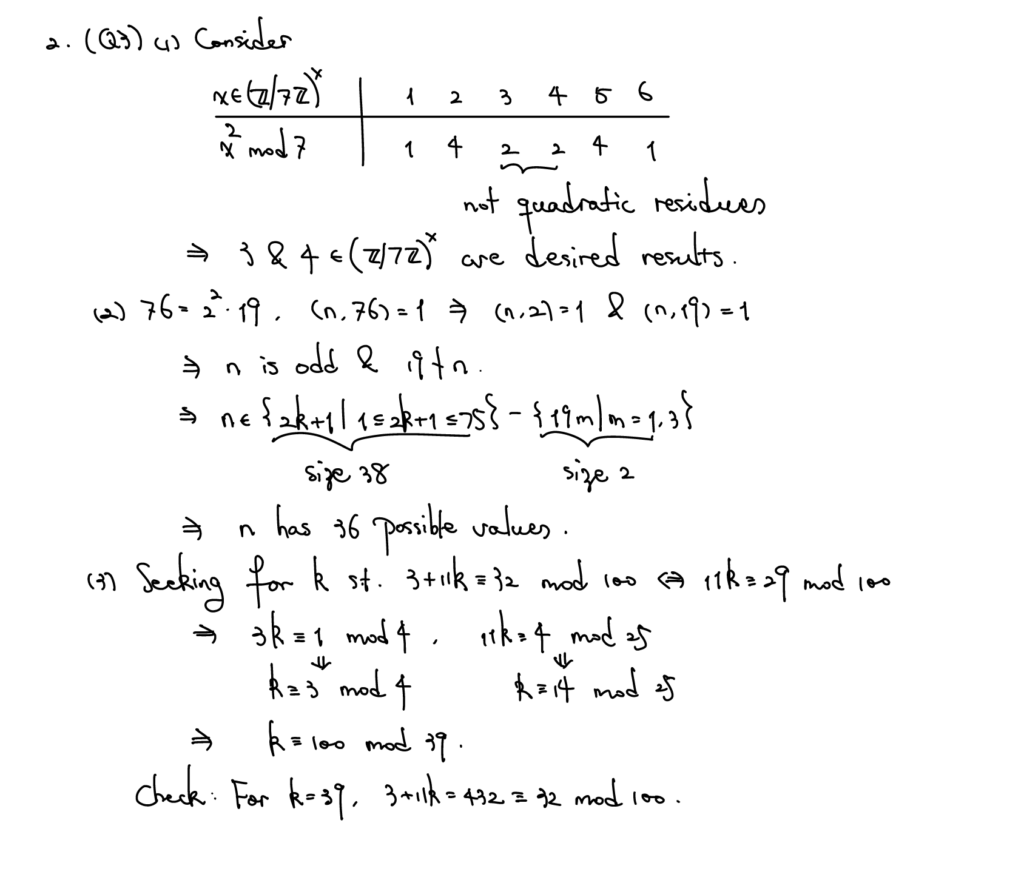 2. (Q3) (1) Consider
x∈(ℤ/7ℤ)^× | 1 2 3 4 5 6
x² mod 7 | 1 4 2 2 4 1
not quadratic residues
⇒ 3 & 4 ∈ (ℤ/7ℤ)^× are desired results.
(2) 76 = 2²·19. (n, 76) = 1 ⇒ (n, 2) = 1 & (n, 19) = 1
⇒ n is odd & 19 ∤ n.
⇒ n ∈ {2k+1 | 1 ≤ 2k+1 ≤ 75} - {19m | m = 1, 3}
size 38 size 2
⇒ n has 36 possible values.
(3) Seeking for k st. 3+11k ≡ 32 mod 100 ⇔ 11k ≡ 29 mod 100
⇒ 3k ≡ 1 mod 4, 11k ≡ 4 mod 25
⇓ ⇓
k ≡ 3 mod 4 k ≡ 14 mod 25
⇒ k ≡ 100 mod 39.
Check: For k=39, 3+11k = 432 ≡ 32 mod 100.